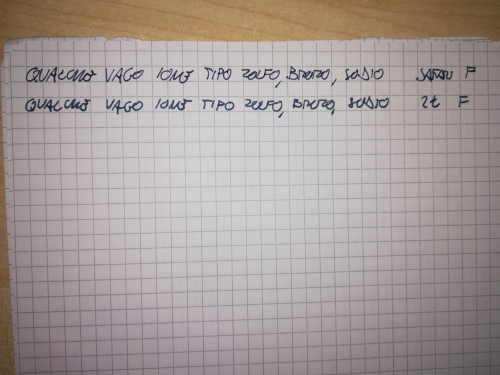 QUALCHE VAGO IONE TIPO ZOLFO, BROMO, SODIO F
QUALCHE VAGO IONE TIPO ZOLFO, BROMO, SODIO 2t F